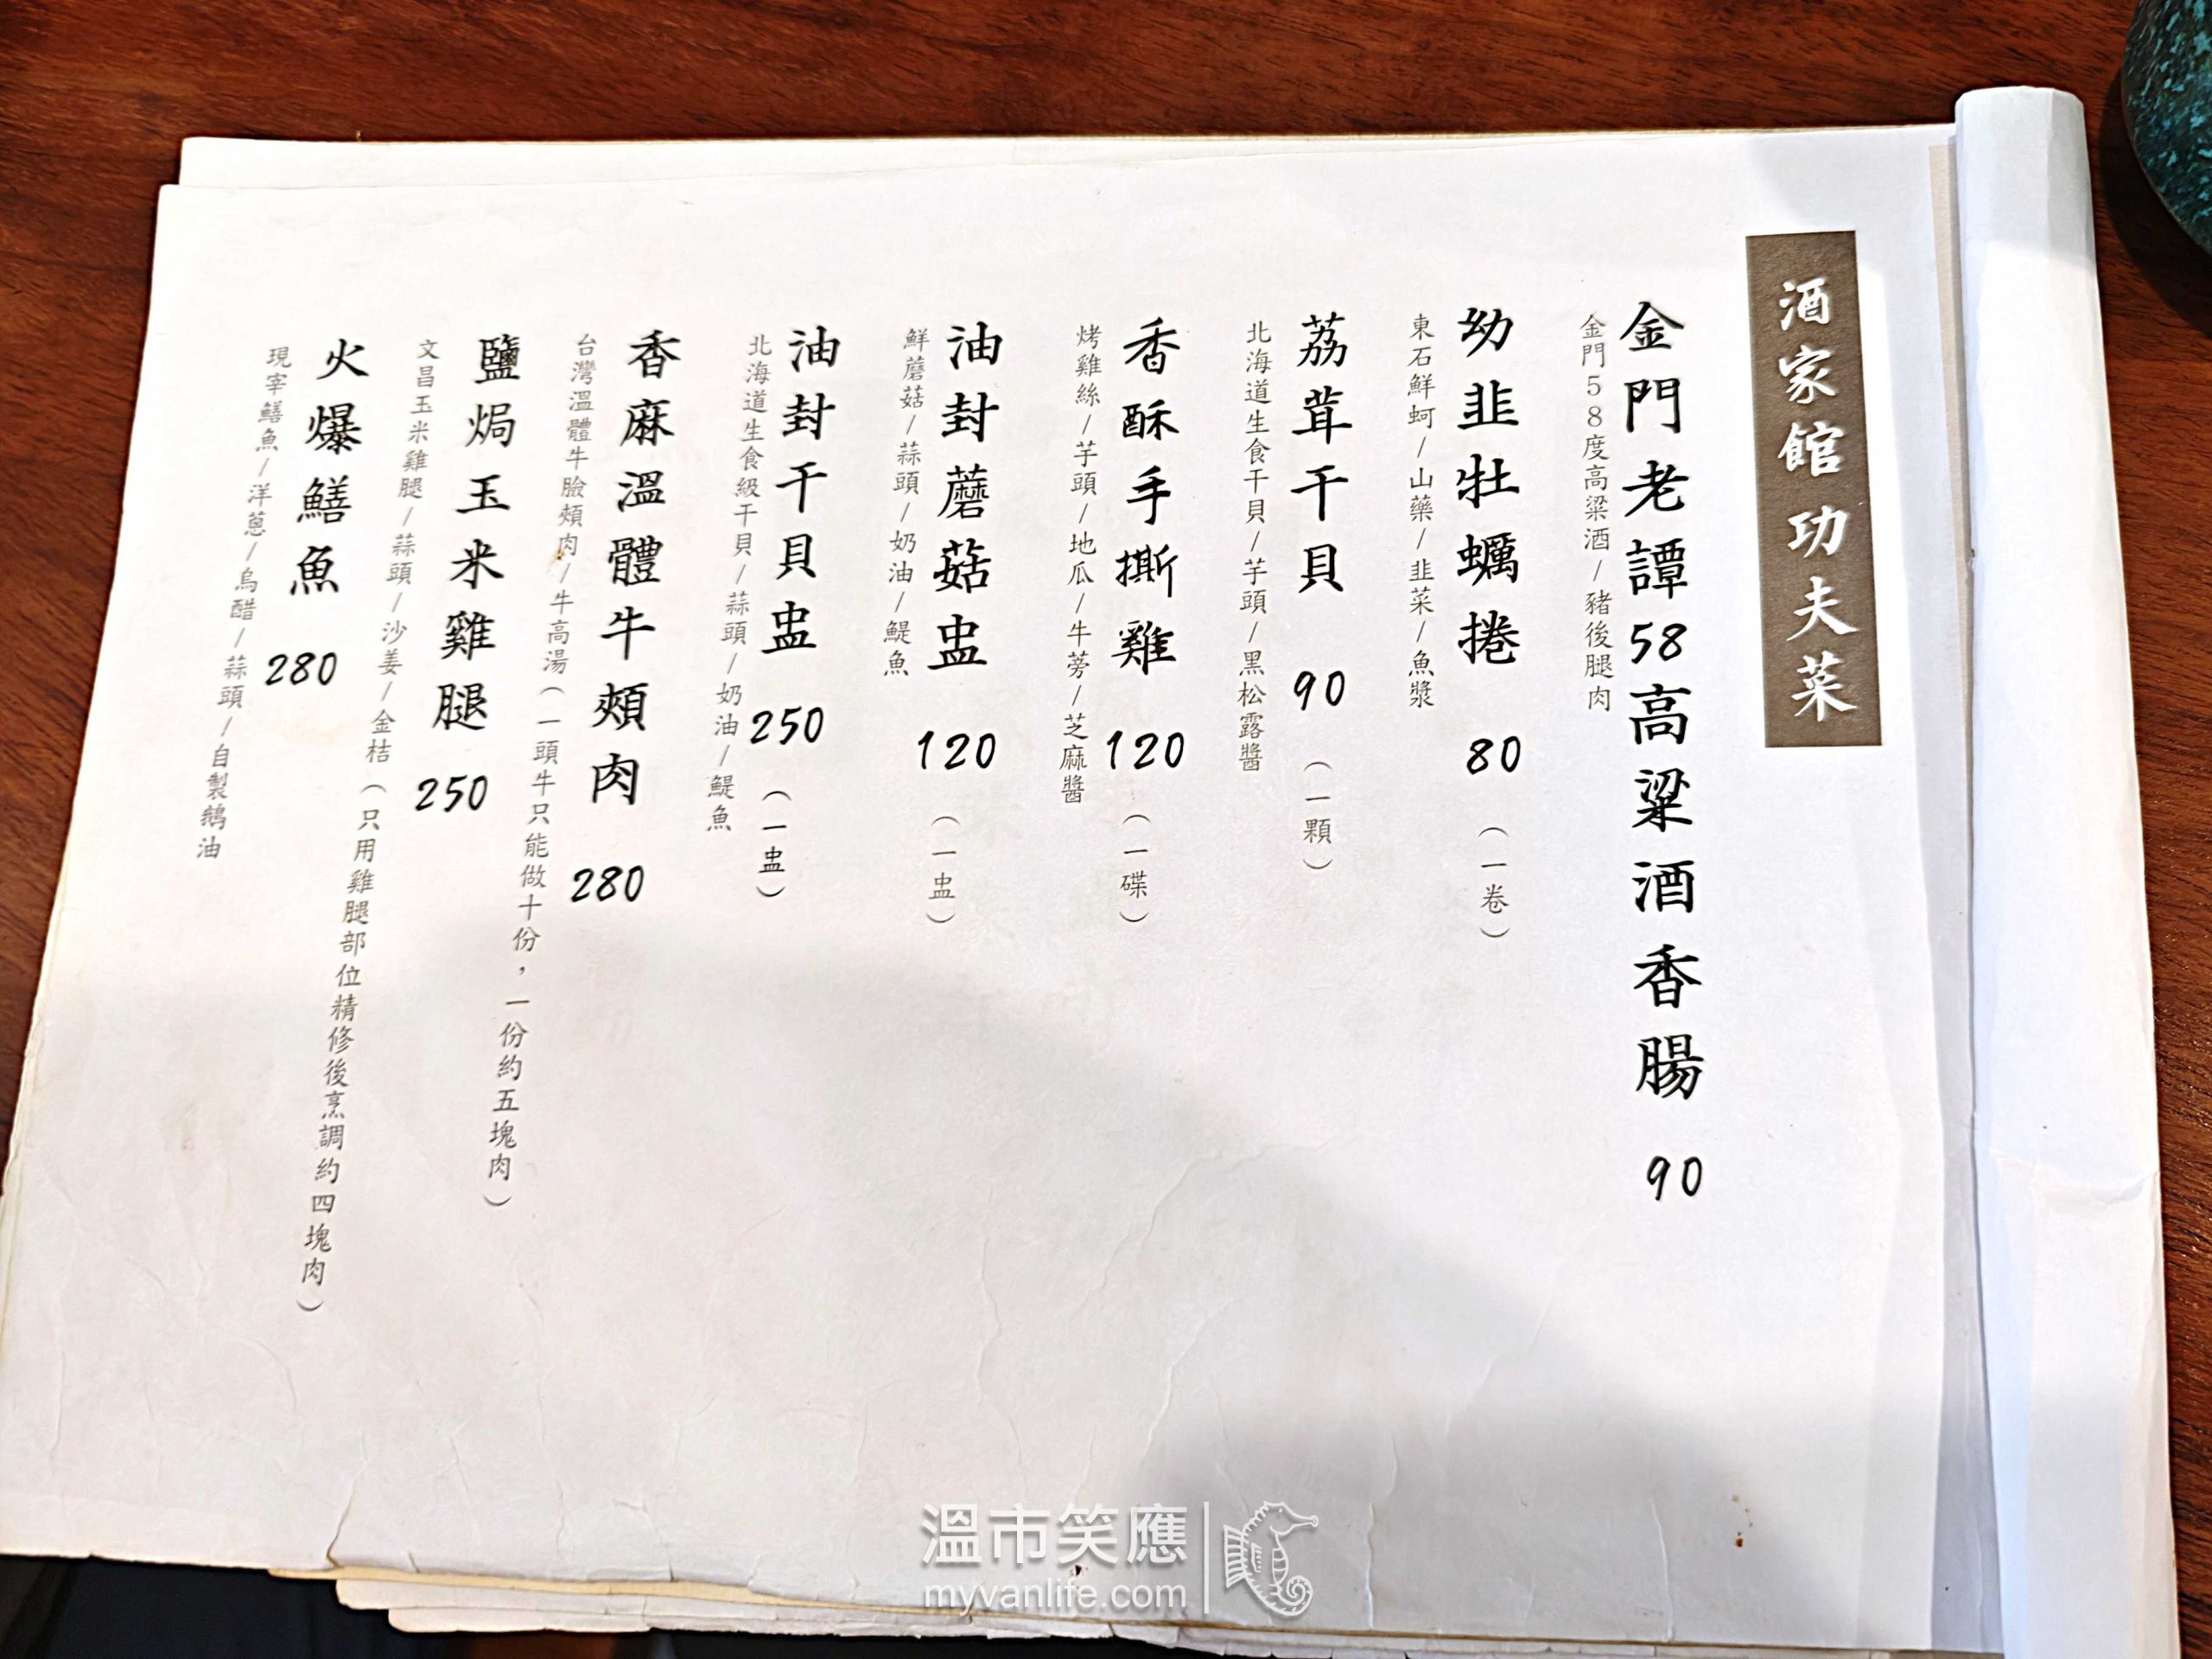 酒家館功夫菜
金門老譚58高粱酒香腸 90
金門58度高粱酒/豬後腿肉
幼韭牡蠣捲 80 (一卷)
東石鮮蚵/山藥/韭菜/魚漿
荔茸干貝 90 (一顆)
北海道生食干貝/芋頭/黑松露醬
香酥手撕雞 120 (一碟)
烤雞絲/芋頭/地瓜/牛蒡/芝麻醬
油封蘑菇盅 120 (一盅)
鮮蘑菇/蒜頭/奶油/鯷魚
油封干貝盅 250 (一盅)
北海道生食級干貝/蒜頭/奶油/鯷魚
香麻溫體牛頰肉 280
台灣溫體牛臉頰肉/牛高湯(一頭牛只能做十份，一份約五塊肉)
鹽焗玉米雞腿 250
文昌玉米雞腿/蒜頭/沙姜/金桔(只用雞腿部位精修後烹調約四塊肉)
火爆鱔魚 280
現宰鱔魚/洋蔥/烏醋/蒜頭/自製鵝油
溫市笑應
myvanlife.com